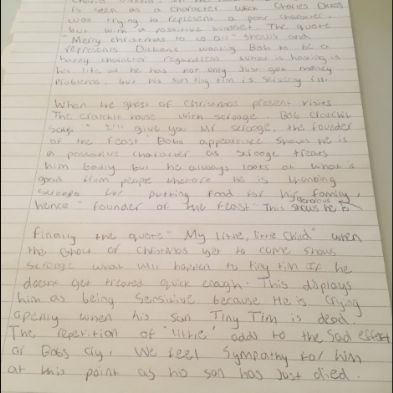 is seen as a character which Charles Dickens
was trying to represent a poor character
but with a positive mindset. The quote
"Merry christmas to us all" shows and
represents Dickens wanting Bob to be a
happy character regardless what is having is
his life as he has not only just got money
problems, but his son tiny tim is
When the ghost of christmas present visits
The cratchit house with scrooge. Bob Cratchit
says "I'll give you Mr scrooge, the founder
of the Feast". Bobs appearance shows he is
a possitive character as scrooge treats
him badly but he always looks at what's
good from people therefore he is thanking
scrooge for putting food for his family,
hence "founder of the feast" This shows he is
generous
finally the quote "My little, little child" when
the Ghost of christmas yet to come shows
scrooge what will happen to tiny tim if he
doesnt get treated quick enough. This displays
him as being sensitive because He is crying
openly when his son Tiny Tim is dead.
The repetition of "little" adds to the sad effect
of Bobs cry. We feel sympathy for him
at this point as his son has just died.